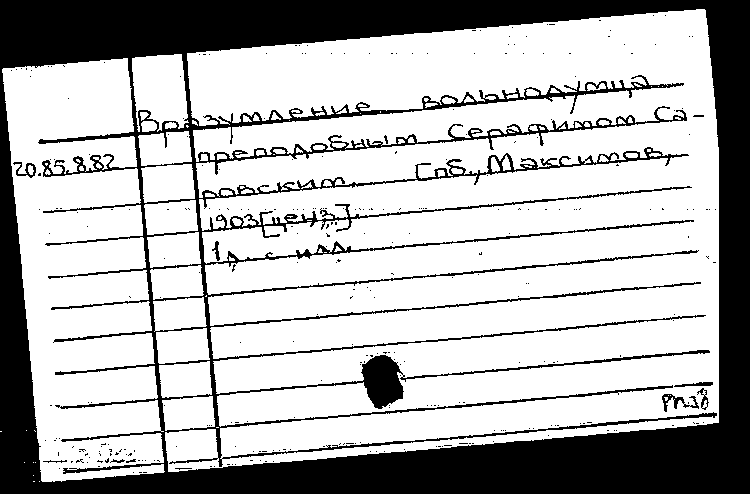 Вразумление вольнодумца
20.85.8.82 преподобным Серафимом Са-
ровским. Спб., Максимов,
1903 [ценз].
1 л. с илл.